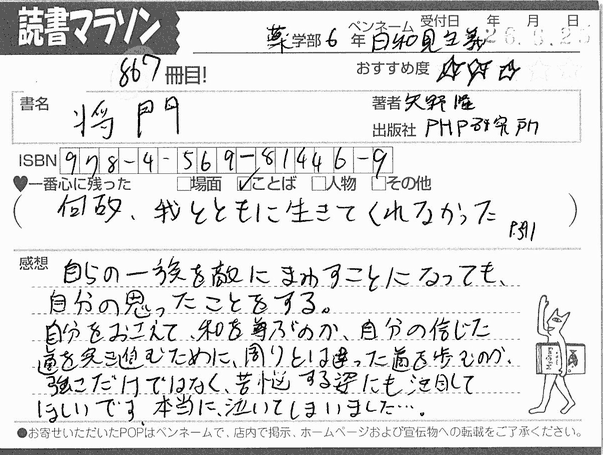 読書マラソン
867冊目!
薬学部 6年 ペンネーム 日和見主義 受付日 年 月 日
26.3.25
おすすめ度 ☆☆☆
書名 将門
著者 矢野隆
出版社 PHP研究所
ISBN 978-4-569-81446-9
♥一番心に残った □場面 ☑ことば □人物 □その他
(何故、我とともに生きてくれなかった P391)
感想
自らの一族を敵にまわすことになっても、
自分の思ったことをする。
自分をおさえて、和を尊ぶのか、自分の信じた
道を突き進むために、周りとは違った道を歩むのか、
強さだけではなく、苦悩する姿にも注目して
ほしいです。本当に、泣いてしまいました…。
●お寄せいただいたPOPはペンネームで、店内で掲示、ホームページおよび宣伝物への転載をご了承ください。